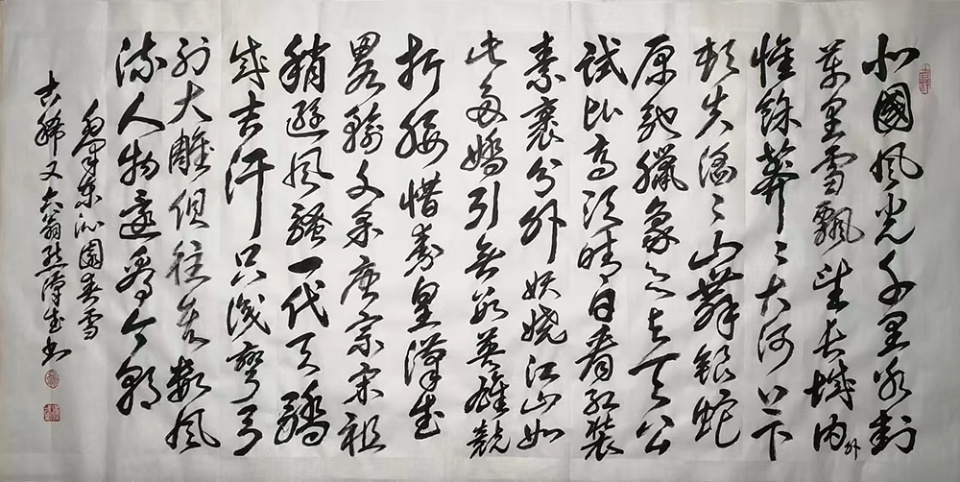 北國風光千里冰封
萬里雪飄望長城内外
惟餘莽〻大河上下
頓失滔〻山舞銀蛇
原馳臘象欲与天公
試比高須晴日看紅裝
素裹分外妖嬈江山如
此多嬌引無數英雄競
折腰惜秦皇漢武
畧輸文采唐宗宋祖
稍遜風騷一代天驕
成吉汗只識彎弓
射大雕俱往矣數風
流人物還看今朝
毛澤東沁園春雪
古稀又翁書